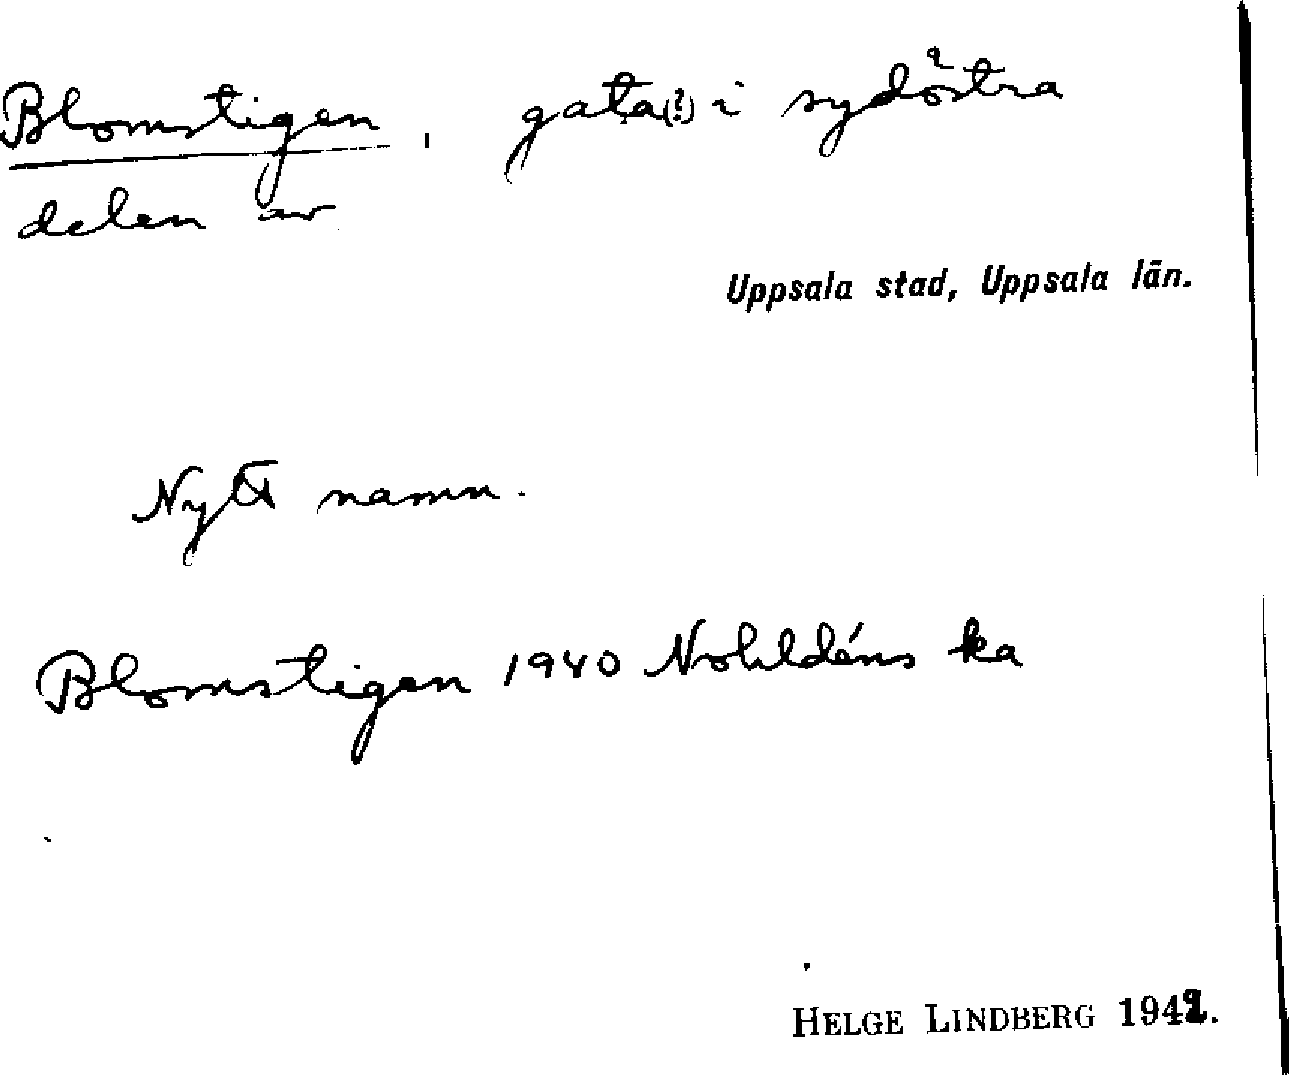 Blomstigen, gata(?) i sydöstra
delen av
Uppsala stad, Uppsala län.
Nytt namn.
Blomstigen 1940 Nohldéns ka
HELGE LINDBERG